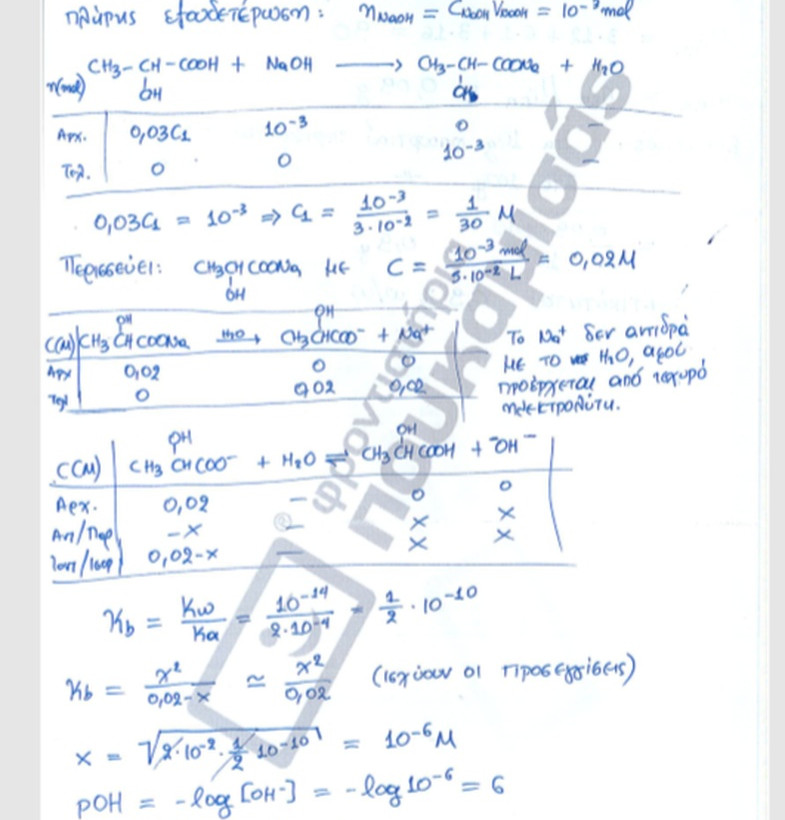 πλήρης εξουδετέρωση: nNaOH = CNaOH VNaOH = 10⁻³ mol
CH₃-CH-COOH + NaOH ⟶ CH₃-CH-COONa + H₂O
n(mol) OH
Αρχ. 0,03C₁ 10⁻³ 0 –
Τελ. 0 0 10⁻³ –
0,03C₁ = 10⁻³ ⇒ C₁ = 10⁻³/3·10⁻² = 1/30 M
Περισσεύει: CH₃CHCOONa με C = 10⁻³ mol/5·10⁻² L = 0,02M
OH
OH OH
C(M) CH₃CHCOONa H₂O→ CH₃CHCOO⁻ + Na⁺
Αρχ 0,02 0 0
Τελ 0 0,02 0,02
Το Na⁺ δεν αντιδρά
με το H₂O, αφού
προέρχεται από ισχυρό
ηλεκτρολύτη.
OH OH
C(M) CH₃CHCOO⁻ + H₂O ⇌ CH₃CHCOOH + OH⁻
Αρχ. 0,02 – 0 0
Αντ/Παρ -x – x x
Ιοντ/Ισορ 0,02-x – x x
Kb = Kw/Ka = 10⁻¹⁴/2·10⁻⁴ = 1/2 · 10⁻¹⁰
Kb = x²/0,02-x ≃ x²/0,02 (ισχύουν οι προσεγγίσεις)
x = √2·10⁻²·1/2 10⁻¹⁰ = 10⁻⁶ M
pOH = -log[OH⁻] = -log10⁻⁶ = 6
φροντιστήρια
πουκαμισάς